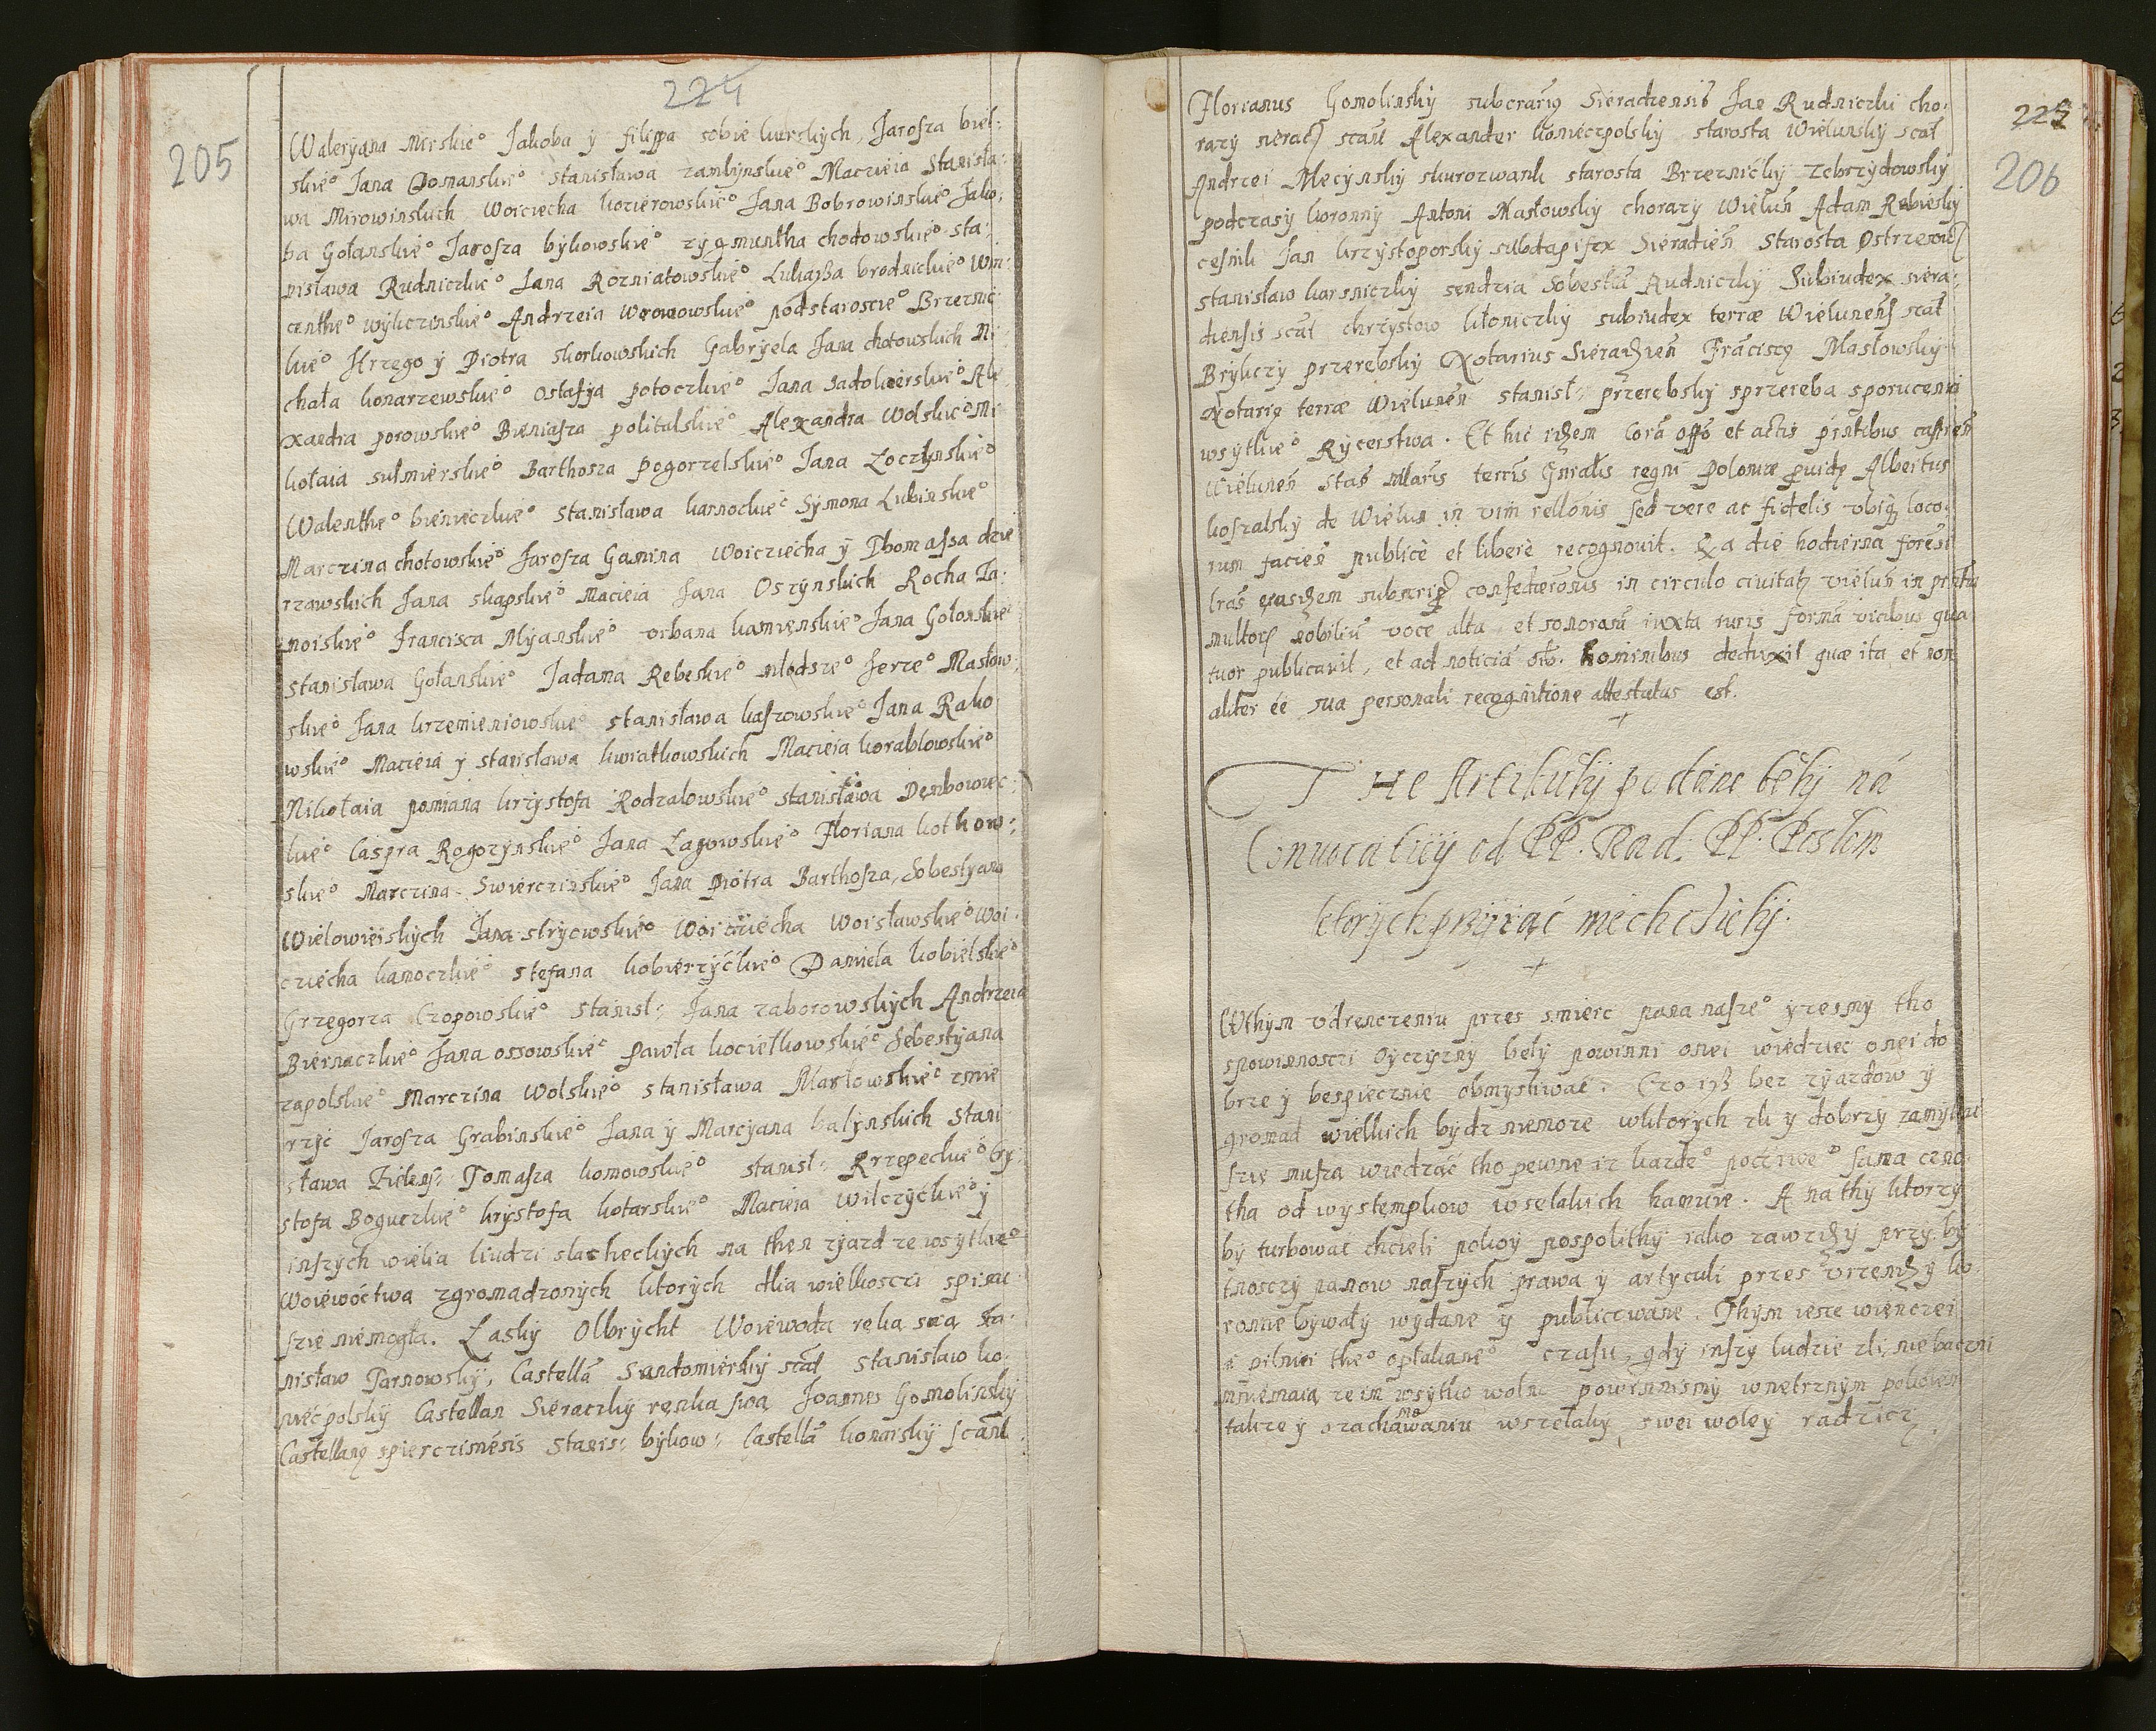 224
205
Waleryana Mirskie° Jakoba y filippa sobie kurskych, Jarosza biel:
skie° Jana Domanskie° stanisława zambynskie° Maczieia Stanisła:
wa Mirowinskich Woiciecha kozierowskie° Jana Bobrowinskie° Jako,
ba Golanskie° Jarosza bykowskie° zygmuntha chodowskie° sta:
nisława Rudniczkie° Jana Rozniatowskie° Lukasza brodnickie° Win:
centhe° wyliczinskie° Andrzeia podstaroscie° Brzeznic
kie° Jrzego y Piotra skorkowskich Gabryela Jana chotowskich Mi
chała konarzewskie° ostafya potoczkie° Jana sadokierskie° Ale
xandra porowskie° Bieniasza politalskie° Alexandra Wolskie° Mi
kołaia sulmierskie° Barthosza Pogorzelskie° Jana Loczynskie°
Walenthe° bienieczkie° stanisława karnockie° Symona Lubinskie°
Marczina chotowskie° Jarosza Gamina Woiciecha y Thomassa dzie
rzawskich Jana skapskie° Macieia Jana Oszynskich Rocha Za:
moiskie° francisca Myanskie° vrbana kamienskie° Jana Golonskie°
stanisława Golanskie° Jadama Rebeskie° młodsze° Jerze° Masłow,
skie° Jana krzemieniowskie° stanisława kaszowskie° Jana Rako
wskie° Macieia y stanisława kwiatkowskich Macieia korablowskie°
Nikołaia pomiana krzysztofa Rodzalowskie° stanisława Dembowiec:
kie° Caspra Rogozynskie° Jana Lagowskie° Floriana kothow:
skie° Marczina Swierczinskie° Jana Piotra Barthosza, Sobestyana
Wielowieiskych Jana strycowskie° Woicziecha Woisławskie° Woi:
cziecha kamoczkie° stefana kobierzyckie° Daniela kobielskie°
Grzegorza Czopowskie° stanisl: Jana zaborowskych Andrzeia
Biernaczkie° Jana ossowskie° pawła kociełkowskie° Sebestyana
zapolskie° Marczina Wolskie° stanisława Masłowskie° zmie
rzyc Jarosza Grabinskie° Jana y Marcyana balynskich Stani
sława Tomasza komowskie° stanisl: Rzepeckie° Cry:
stofa Boguczkie° krystofa kotarskie° Macieia wilczyckie° y
inszych wielia liudzi slacheckych na then zyazd ze wsytkie°
Woiewoctwa zgromadzonych ktorych dlia wielkosczi spisac
szie niemogła. Lasky Olbrycht Woiewoda reka swa Sta:
nisław Tarnowsky, Castella Sandomiersky scal stanisław ko
niecpolsky Castellan Sieraczky renka swa Joannes Gomolinsky
Castellanq spiercrimesis Stanis: bykow: Castella konarsky scanl
225
206
Florianus Gomolinsky subcrarig Sieradiensis Jan Rudniczki cho:
razy sieradz scanl Alexander koniecpolsky starosta Wielunsky scal
Andrzei Mecynsky skurozwank starosta Brzeznicky zebrzydowsky
podczasy koronny Antoni Masłowsky chorazy Wielun Adam Rebiesky
cesnik Jan krzystoporsky subdapifex Sieradien starosta Ostrzeszow
stanislaw karsniczky sendzia Sobestia Rudniczky Subiudex siera:
diensis scal chrzystow kłoniczky subiudex terræ Wielunens scal
Brykczy przerebsky Notarius Sieradzien Fracisco Masłowsky
Notarig terræ Wielunen stanisl: przerebsky sprzereba sporucenia
wsytkie° Rycerstwa. Et hic idem Cora offo et actis pntibus castren
Wielunen stas mlaris terris Gnralis regni Poloniæ puidq Albertus
koszalsky de Wielun in vim rellonis sed vere ac fidelis vbiq loco,
rum facien publice et libere recognouit. Q a die hodierna forensi
lras easdem subscrip confederonis in circulo ciuitatis vielun in pntu
multor nobiliu voce alta et sonorasa iuxta iuris forma vicibus qua
tuor publicauit, et ad noticia oib. hominibus deduxit quæ ita et non
aliter ee sua personali recognitione attestatus est.
The Artikuły podane beły ná
Conuocatiiy od PP. Rad: PP. Posłom
ktorych przyiąć niechcieli.
Wthym vdrenczeniu przes smierc pana nasze° yzesmy tho
spowinnosczi oyczyzny bely powinni onei wiedziec onei do
brze y bespiecznie obmysliwac. Czo isz bez zyazdow y
gromad wielkich bydz niemoze wktorych zli y dobrzy zamykac
szie musza wiedzac tho pewne iz kazde° poczciwe° sama czno
tha od wystempkow wselakich hamuie. A na thy ktorzy
by turbowac chcieli pokoy pospolithy iako zawzdy przy by
tnosczy panow naszych prawa y artyculi przes vrzendy ko
ronne bywały wydane y publicowane. Thym iesce wienczei
i pilniei the° oplakane° czasu, gdy inszy ludzie zli, niebaczni
mniemaią ze im wsytko wolno powinnismy wnetrznym pokoiem
takze y ozachawaniu wszelaky swei woley radzicz